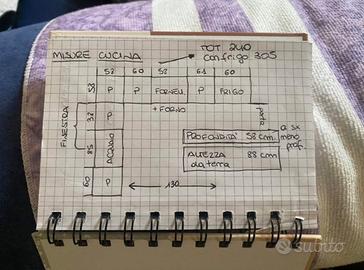 MISURE CUCINA
TOT 240
con frigo 305
58 60 58 61 60
58 P P FORNELLI P FRIGO
+ FORNO
FINESTRA
32 P
85 ACQUAIO
60 P
130
porta
PROFONDITÀ 58 cm.
a sx meno prof.
ALTEZZA da terra 88 cm
subito